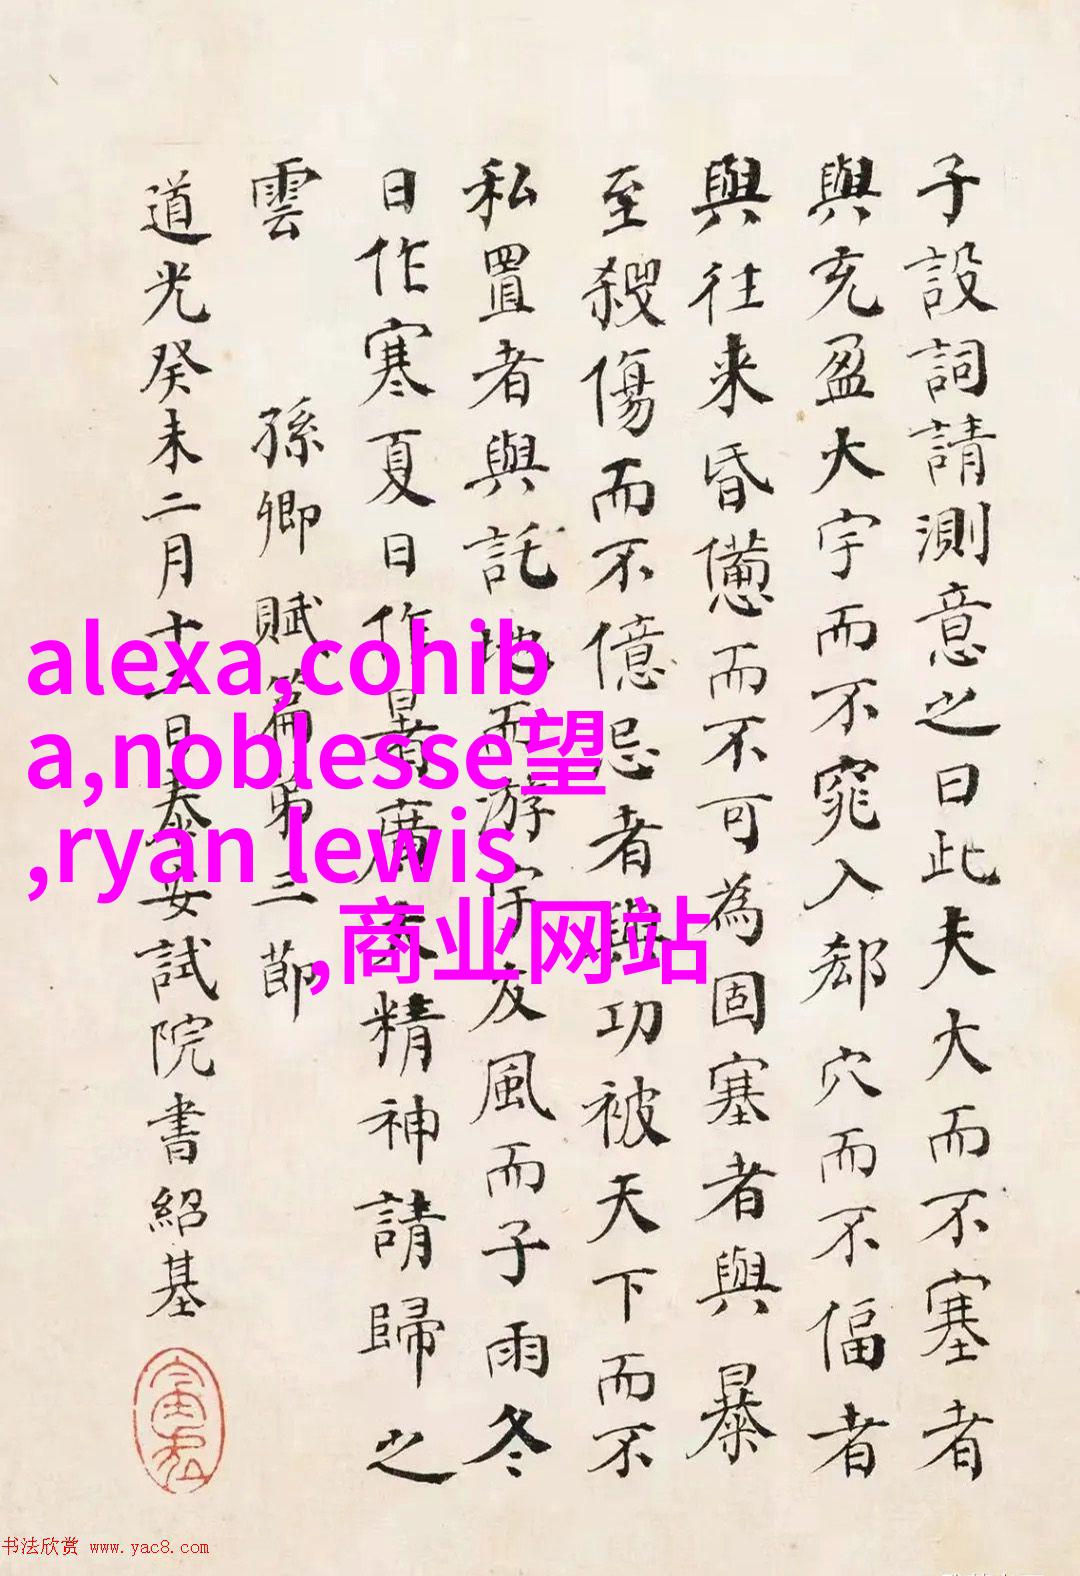 子設詞請測意之曰此夫大而不塞者
與充盈大宇而不窕入郄穴而不偪者
與往来昏憊而不可為固塞者與暴
至殺傷而不億忌者與功被天下而不
私置者與託地而游宇友風而子雨冬
日作寒夏日作暑廣大精神請歸之
雲 孫卿賦篇弟三節
道光癸未二月十二日泰安試院書紹基
alexa,cohib
a,noblesse望
,ryan lewis
,商业网站
书法欣赏 www.yac8.com